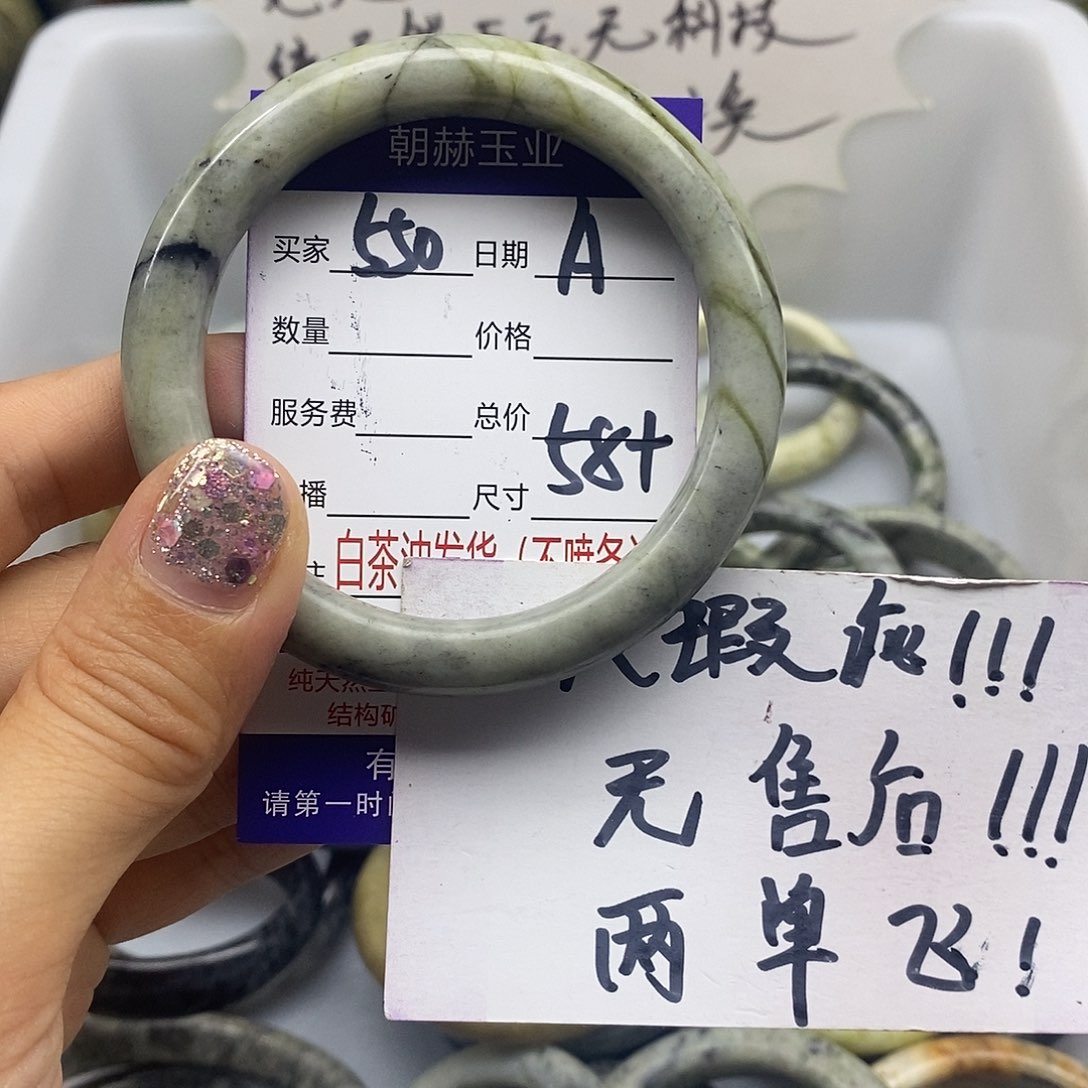 无科技
朝赫玉业
买家 550 日期 A
数量 价格
服务费 总价
58+
播 尺寸
白茶油发货（不喷冬
纯天然
结构矿
有
请第一时
瑕疵!!!
无售后!!!
两单飞!